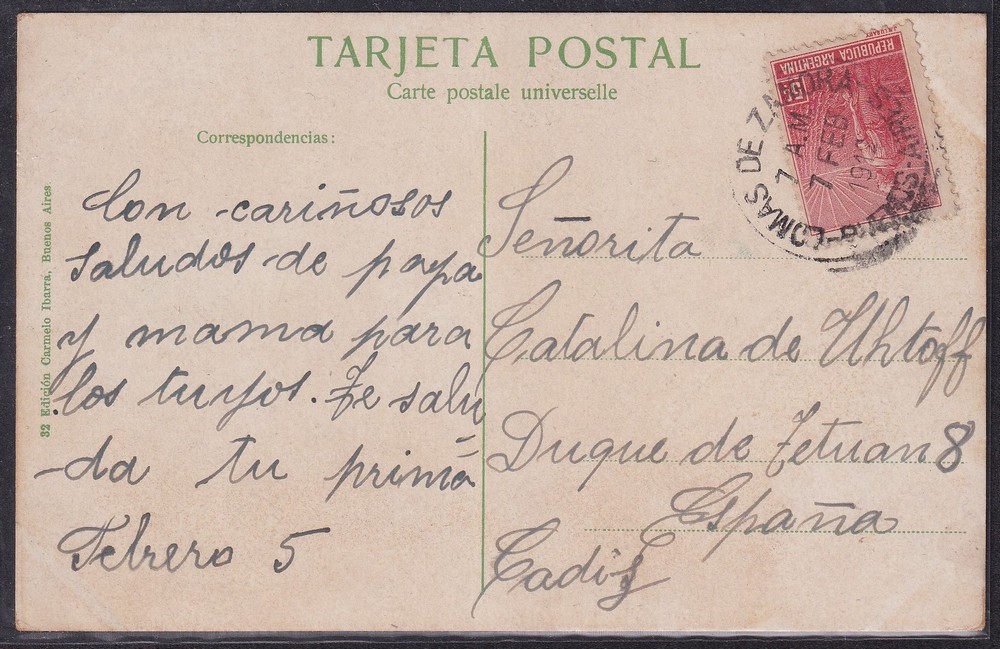 TARJETA POSTAL
Carte postale universelle
Correspondencias:
Con cariñosos
saludos de papa
y mama para
los tuyos. Te salu
-da tu prima
Febrero 5
Señorita
Catalina de Uhtoff
Duque de Tetuan 8
España
Cadiz
32 Edición Carmelo Ibarra, Buenos Aires
REPUBLICA ARGENTINA
5
LOMAS DE ZAMORA
7 A.M.
7 FEB